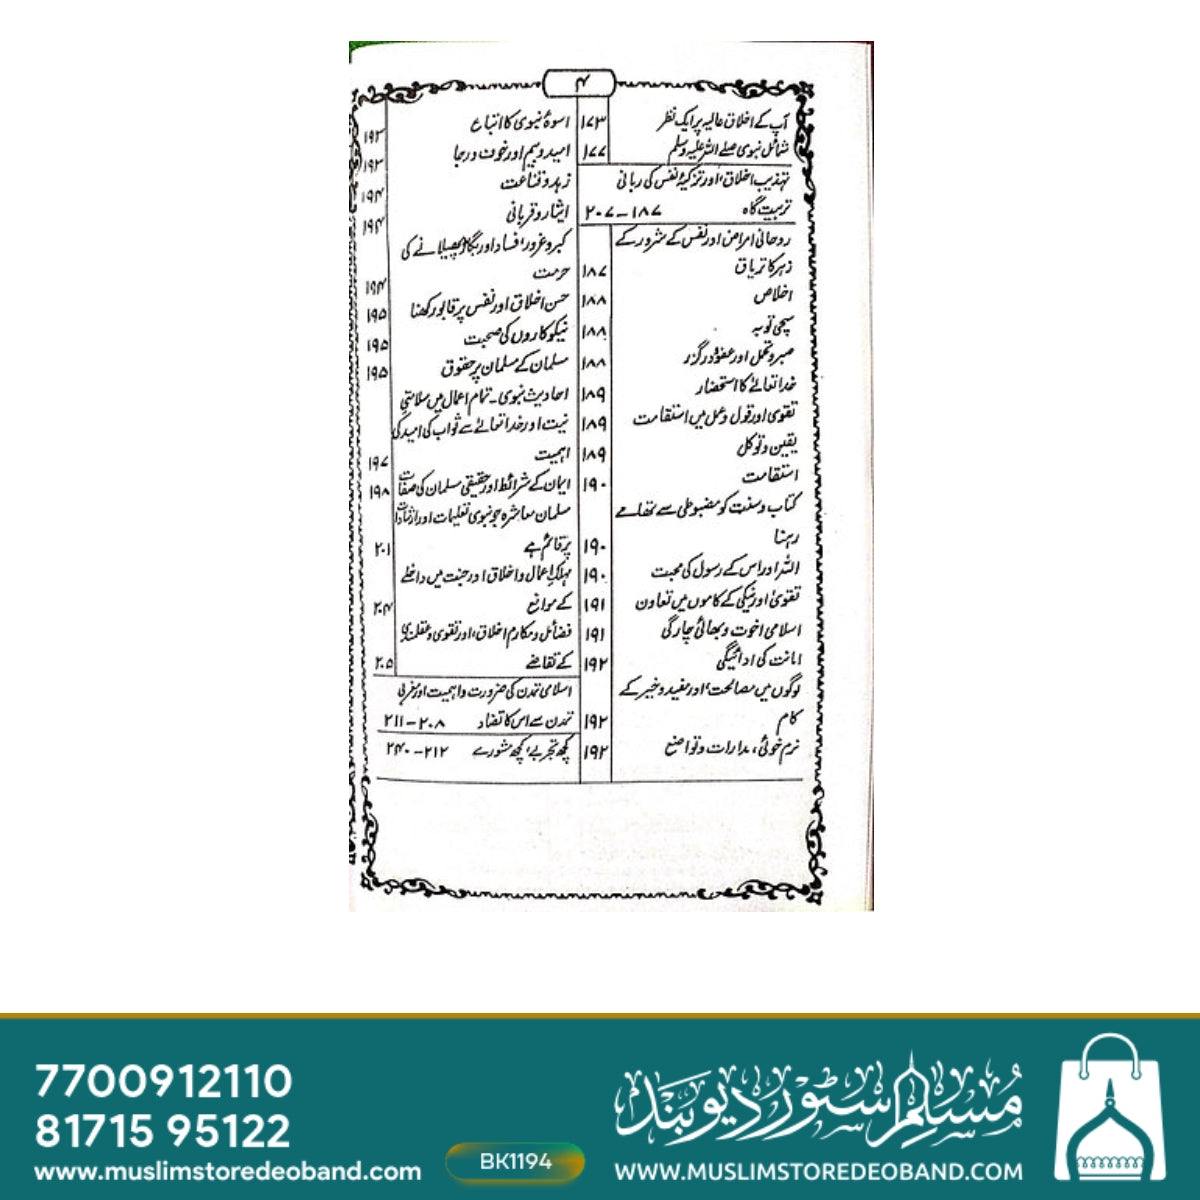 ۴
آپ کے اخلاق عالیہ پر ایک نظر ۱۷۳
شمائل نبوی صلے اللہ علیہ وسلم ۱۷۷
تہذیب اخلاق، اور تزکیۂ نفس کی ربانی
تربیت گاہ ۱۸۷ – ۲۰۷
روحانی امراض اور نفس کے شرور کے
زہر کا تریاق ۱۸۷
اخلاص ۱۸۸
سچی توبہ ۱۸۸
صبر و تحمل اور عفو و درگزر ۱۸۸
خدا تعالےٰ کا استحضار ۱۸۹
تقویٰ اور قول و عمل میں استقامت ۱۸۹
یقین و توکل ۱۸۹
استقامت ۱۹۰
کتاب و سنت کو مضبوطی سے تھامے
رہنا ۱۹۰
اللہ اور اس کے رسول کی محبت ۱۹۰
تقویٰ اور نیکی کے کاموں میں تعاون ۱۹۱
اسلامی اخوت و بھائی چارگی ۱۹۱
امانت کی ادائیگی ۱۹۲
لوگوں میں مصالحت، اور مفید و خیر کے
کام ۱۹۲
نرم خوئی، مدارات و تواضع ۱۹۲
اسوۂ نبوی کا اتباع ۱۹۳
امید و بیم اور خوف و رجا ۱۹۳
زہد و قناعت ۱۹۴
ایثار و قربانی ۱۹۴
کبر و غرور، فساد اور بگاڑ پھیلانے کی
حرمت ۱۹۴
حسن اخلاق اور نفس پر قابو رکھنا ۱۹۵
نیکو کاروں کی صحبت ۱۹۵
مسلمان کے مسلمان پر حقوق ۱۹۵
احادیث نبوی۔ تمام اعمال میں سلامتی
نیت اور خدا تعالےٰ سے ثواب کی امید کی
اہمیت ۱۹۷
ایمان کے شرائط اور حقیقی مسلمان کی صفات ۱۹۸
مسلمان معاشرہ جو نبوی تعلیمات اور ارشادات
پر قائم ہے ۲۰۱
مہلک اعمال و اخلاق اور جنت میں داخلے
کے موانع ۲۰۴
فضائل و مکارم اخلاق، اور تقویٰ و عقلمندی
کے تقاضے ۲۰۵
اسلامی تمدن کی ضرورت و اہمیت اور مغربی
تمدن سے اس کا تضاد ۲۰۸ – ۲۱۱
کچھ تجربے، کچھ مشورے ۲۱۲ – ۲۴۰
7700912110
81715 95122
www.muslimstoredeoband.com
BK1194
مسلم سٹور دیوبند
WWW.MUSLIMSTOREDEOBAND.COM